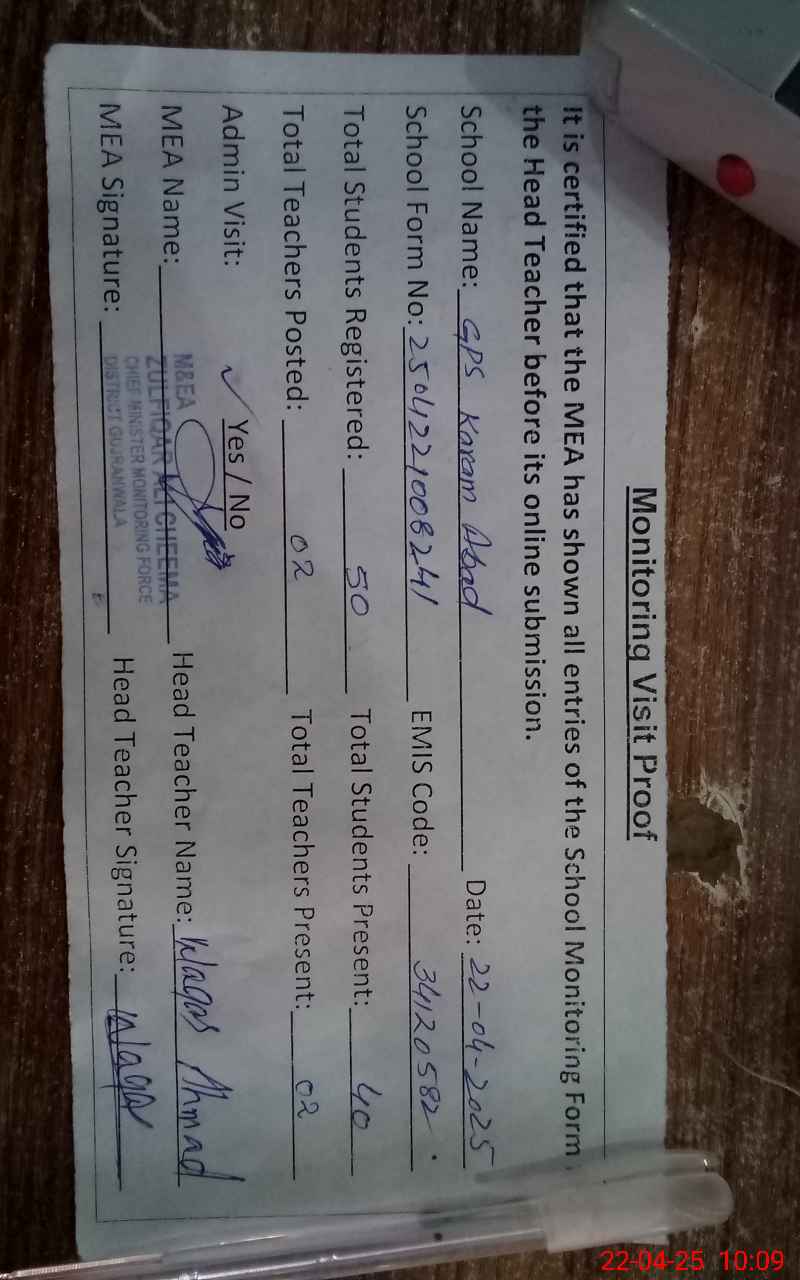 Monitoring Visit Proof
It is certified that the MEA has shown all entries of the School Monitoring Form
the Head Teacher before its online submission.
School Name: GPS Karam Abad Date: 22-04-2025
School Form No: 2504221008241 EMIS Code: 34120582
Total Students Registered: 50 Total Students Present: 40
Total Teachers Posted: 02 Total Teachers Present: 02
Admin Visit: ✓ Yes / No
MEA Name: Head Teacher Name: Waqas Ahmad
MEA Signature: Head Teacher Signature: Waqas
M&EA
ZULFIQAR ALI CHEEMA
CHIEF MINISTER MONITORING FORCE
DISTRICT GUJRANWALA
22-04-25 10:09